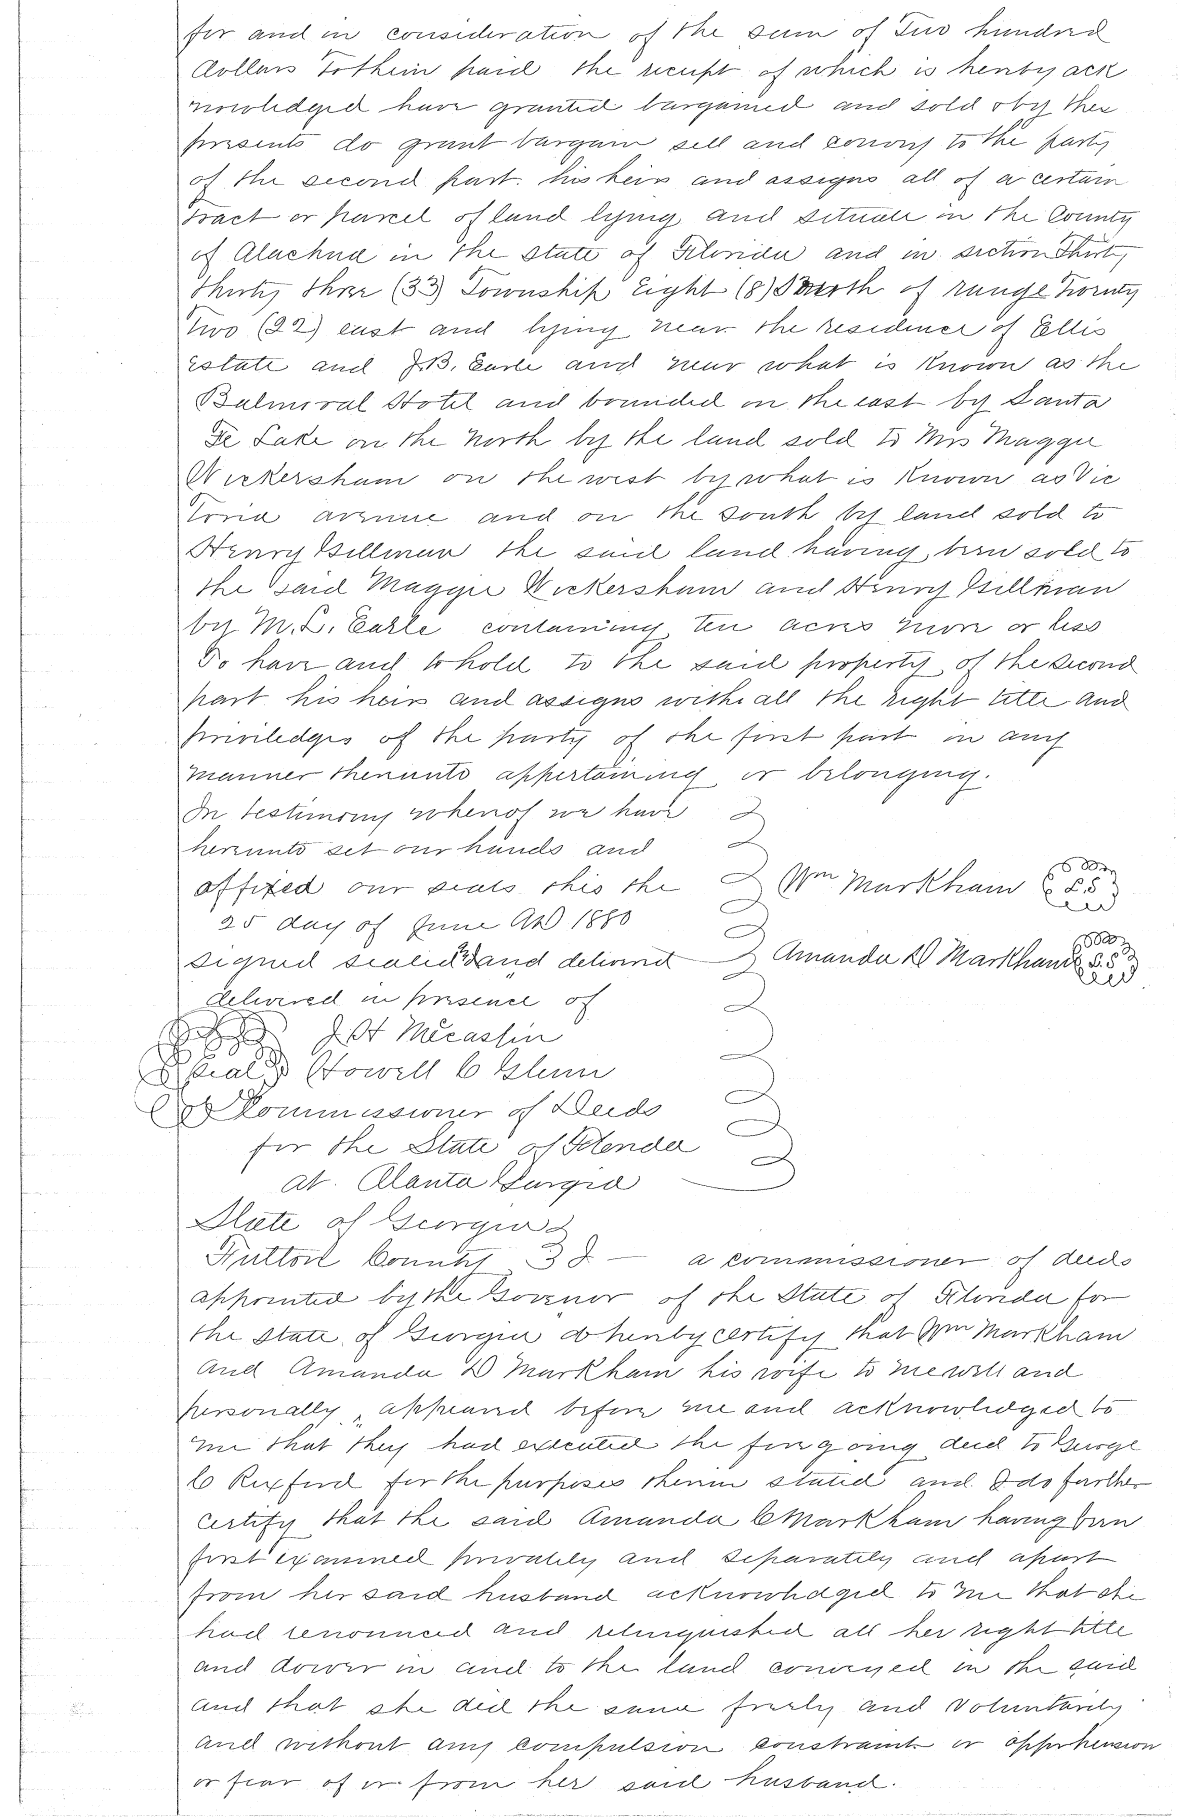 for and in consideration of the sum of Two hundred
dollars to them paid the receipt of which is hereby ack
nowledged have granted bargained and sold & by these
presents do grant bargain sell and convey to the party
of the second part his heirs and assigns all of a certain
tract or parcel of land lying and situate in the County
of Alachua in the State of Florida and in section Thirty
Thirty three (33) Township Eight (8) South of range Twenty
Two (22) east and lying near the residence of Ellis
estate and J.B. Earle and near what is known as the
Balmoral Hotel and bounded on the east by Santa
Fe Lake on the North by the land sold to Mrs Maggie
Wickersham on the west by what is known as Vic
toria avenue and on the south by land sold to
Henry Billman the said land having been sold to
the said Maggie Wickersham and Henry Billman
by M.L. Earle containing ten acres more or less
To have and to hold to the said property of the second
part his heirs and assigns with all the right title and
priviledges of the party of the first part in any
manner thereunto appertaining or belonging.
In testimony whereof we have
hereunto set our hands and
affixed our seals this the Wm Markham L S
25 day of June AD 1880
signed sealed and delivered Amanda D Markham L.S
delivered in presence of
J H Mecaslin
Seal Howell C Glenn
Commissioner of Deeds
for the State of Florida
at Alanta Gurgia
State of Georgia
Fulton County I a commissioner of deeds
appointed by the Govenor of the State of Florida for
the State of Georgia do hereby certify that Wm Markham
and Amanda D Markham his wife to me well and
personally appeared before me and acknowledged to
me that they had executed the foregoing deed to George
C Rexford for the purposes therein stated and I do further
certify that the said Amanda C Markham having been
first examined privately and separately and apart
from her said husband acknowledged to me that she
had renounced and relinquished all her right title
and dower in and to the land conveyed in the said
and that she did the same freely and voluntarily
and without any compulsion constraint or apprehension
or fear of or from her said husband.